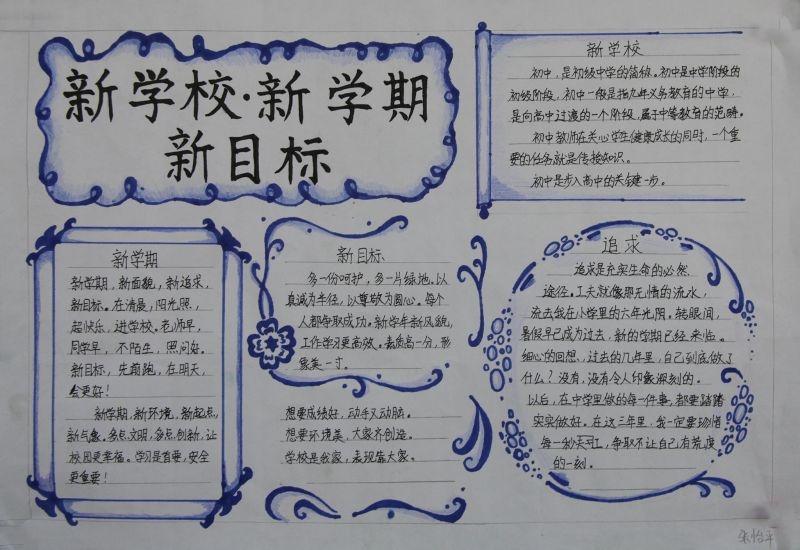 新学校·新学期
新目标
新学校
初中，是初级中学的简称。初中是中学阶段的
初级阶段，初中一般是指九年义务教育的中学，
是向高中过渡的一个阶段，属于中等教育的范畴。
初中教师在关心学生健康成长的同时，一个重
要的任务就是传授知识。
初中是步入高中的关键一步。
新学期
新学期，新面貌，新追求，
新目标。在清晨，阳光照，
超快乐，进学校。老师早，
同学早，不陌生，照问好。
新目标，先领跑，在明天，
会更好！
新学期，新环境，新起点，
新气象。多点文明，多点创新，让
校园更幸福。学习是首要，安全
更重要！
新目标
多一份呵护，多一片绿地。以
真诚为半径，以尊敬为圆心。每个
人都争取成功。新学年新风貌，
工作学习更高效。素质高一分，形
象美一寸。
想要成绩好，动手又动脑。
想要环境美，大家齐创造。
学校是我家，表现靠大家。
追求
追求是充实生命的必然
途径。工夫就像那无情的流水，
流去我在小学里的六年光阴。转眼间，
暑假早已成为过去，新的学期已经来临。
细心的回想，过去的几年里，自己到底做了
什么？没有，没有令人印象深刻的。
以后，在中学里做的每一件事，都要踏踏
实实做好。在这三年里，我一定要珍惜
每一秒天工，争取不让自己有荒废
的一刻。
张怡平